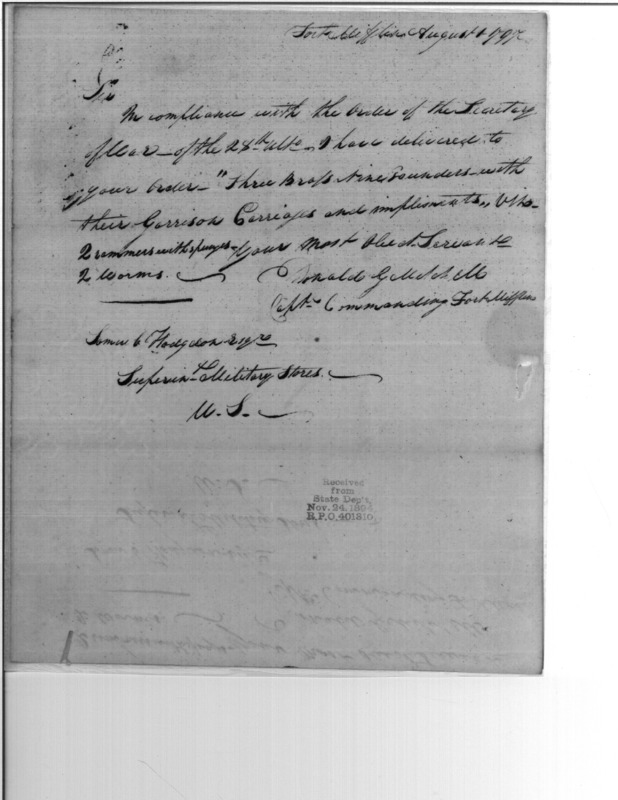 Fort Mifflin August 1797
Sir
In compliance with the Order of the Secretary
of War - of the 28th ulto, I have delivered to
your Order - "Three Brass Nine Pounders - with
their Garrison Carriages and impliments,, Viz.
2 rammers with spunges - Your Most Obedt. Servant
2 Worms.
Donald G Mitchell
Capt. Commanding Fort Mifflin
Hodgdon Esqre
Superint. Military Stores.
U. S.
Received
from
State Dep't,
Nov. 24, 1894
R.P.O. 401310